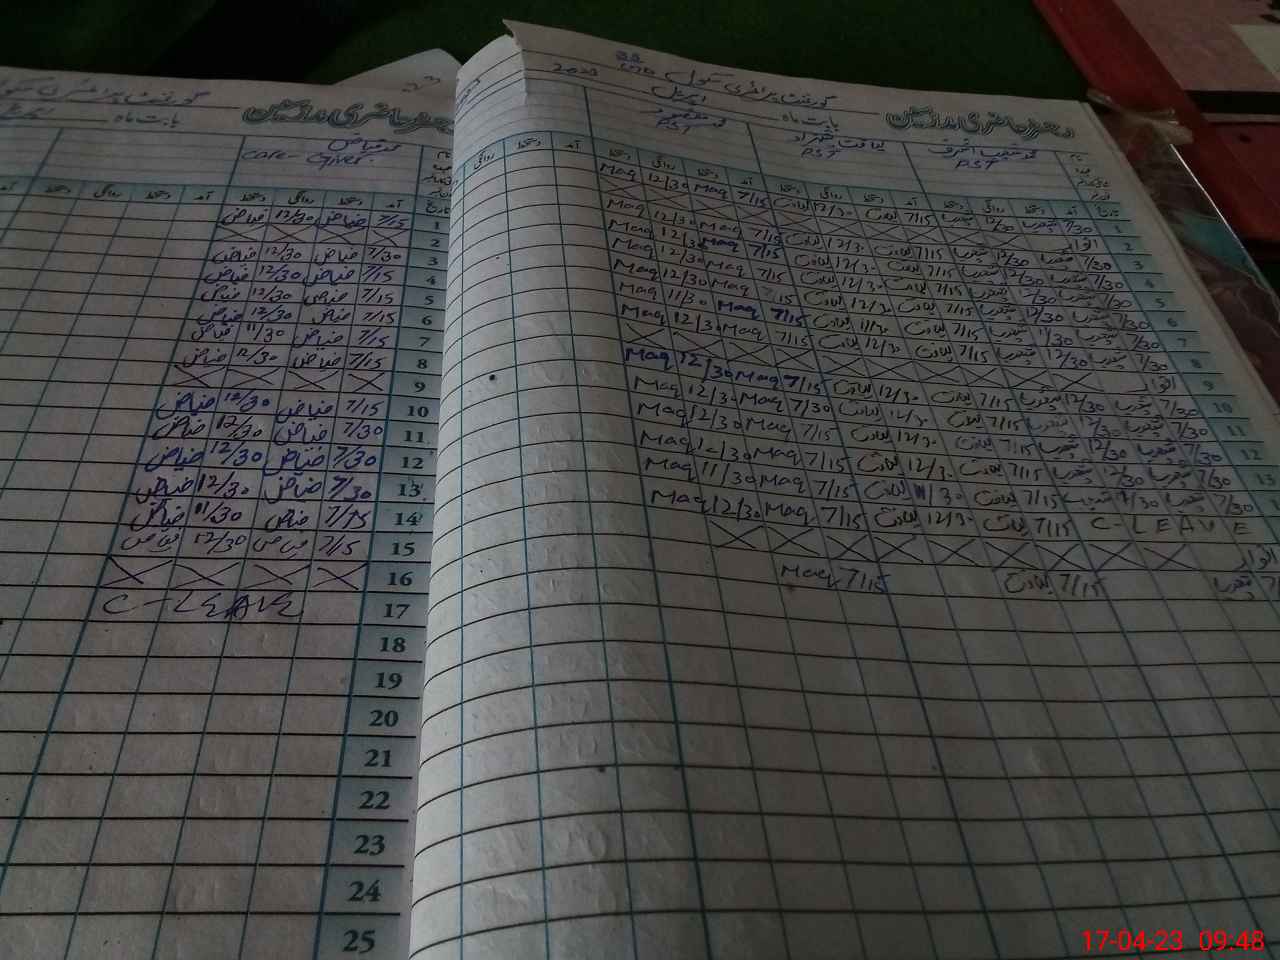 گورنمنٹ پرائمری سکول
بابت ماہ اپریل 2023
محمد شعیب اشرف PST
لیاقت شہزاد PST
محمد مقصود PST
تاریخ آمد دستخط روانگی دستخط آمد دستخط روانگی دستخط آمد دستخط روانگی دستخط آمد دستخط روانگی
1 7/30 شعیب 12/30 شعیب 7/15 لیاقت 12/30 لیاقت 7/15 Maq 12/30 Maq
2 اتوار
3 7/30 شعیب 12/30 شعیب 7/15 لیاقت 12/30 لیاقت 7/15 Maq 12/30 Maq
4 7/30 شعیب 12/30 شعیب 7/15 لیاقت 12/30 لیاقت 7/15 Maq 12/30 Maq
5 7/30 شعیب 12/30 شعیب 7/15 لیاقت 12/30 لیاقت 7/15 Maq 12/30 Maq
6 7/30 شعیب 12/30 شعیب 7/15 لیاقت 12/30 لیاقت 7/15 Maq 12/30 Maq
7 7/30 شعیب 11/30 شعیب 7/15 لیاقت 11/30 لیاقت 7/15 Maq 11/30 Maq
8 7/30 شعیب 12/30 شعیب 7/15 لیاقت 12/30 لیاقت 7/15 Maq 12/30 Maq
9 اتوار
10 7/30 شعیب 12/30 شعیب 7/15 لیاقت 12/30 لیاقت 7/15 Maq 12/30 Maq
11 7/30 شعیب 12/30 شعیب 7/15 لیاقت 12/30 لیاقت 7/30 Maq 12/30 Maq
12 7/30 شعیب 12/30 شعیب 7/15 لیاقت 12/30 لیاقت 7/15 Maq 12/30 Maq
13 7/30 شعیب 12/30 شعیب 7/15 لیاقت 12/30 لیاقت 7/15 Maq 12/30 Maq
7/30 شعیب 11/30 شعیب 7/15 لیاقت 11/30 لیاقت 7/15 Maq 11/30 Maq
C-LEAVE 7/15 لیاقت 12/30 لیاقت 7/15 Maq 12/30 Maq
اتوار
شعیب 7/15 لیاقت 7/15 Maq
گورنمنٹ پرائمری سکول
بابت ماہ
محمد فیاض
care-Giver
تاریخ آمد دستخط روانگی دستخط آمد دستخط روانگی دستخط آمد
1 7/15 فیاض 12/30 فیاض
2
3 7/30 فیاض 12/30 فیاض
4 7/15 فیاض 12/30 فیاض
5 7/15 فیاض 12/30 فیاض
6 7/15 فیاض 12/30 فیاض
7 7/15 فیاض 11/30 فیاض
8 7/15 فیاض 12/30 فیاض
9
10 7/15 فیاض 12/30 فیاض
11 7/30 فیاض 12/30 فیاض
12 7/30 فیاض 12/30 فیاض
13 7/30 فیاض 12/30 فیاض
14 7/15 فیاض 11/30 فیاض
15 7/15 فیاض 12/30 فیاض
16
17 C-LEAVE
18
19
20
21
22
23
24
25
17-04-23 09:48